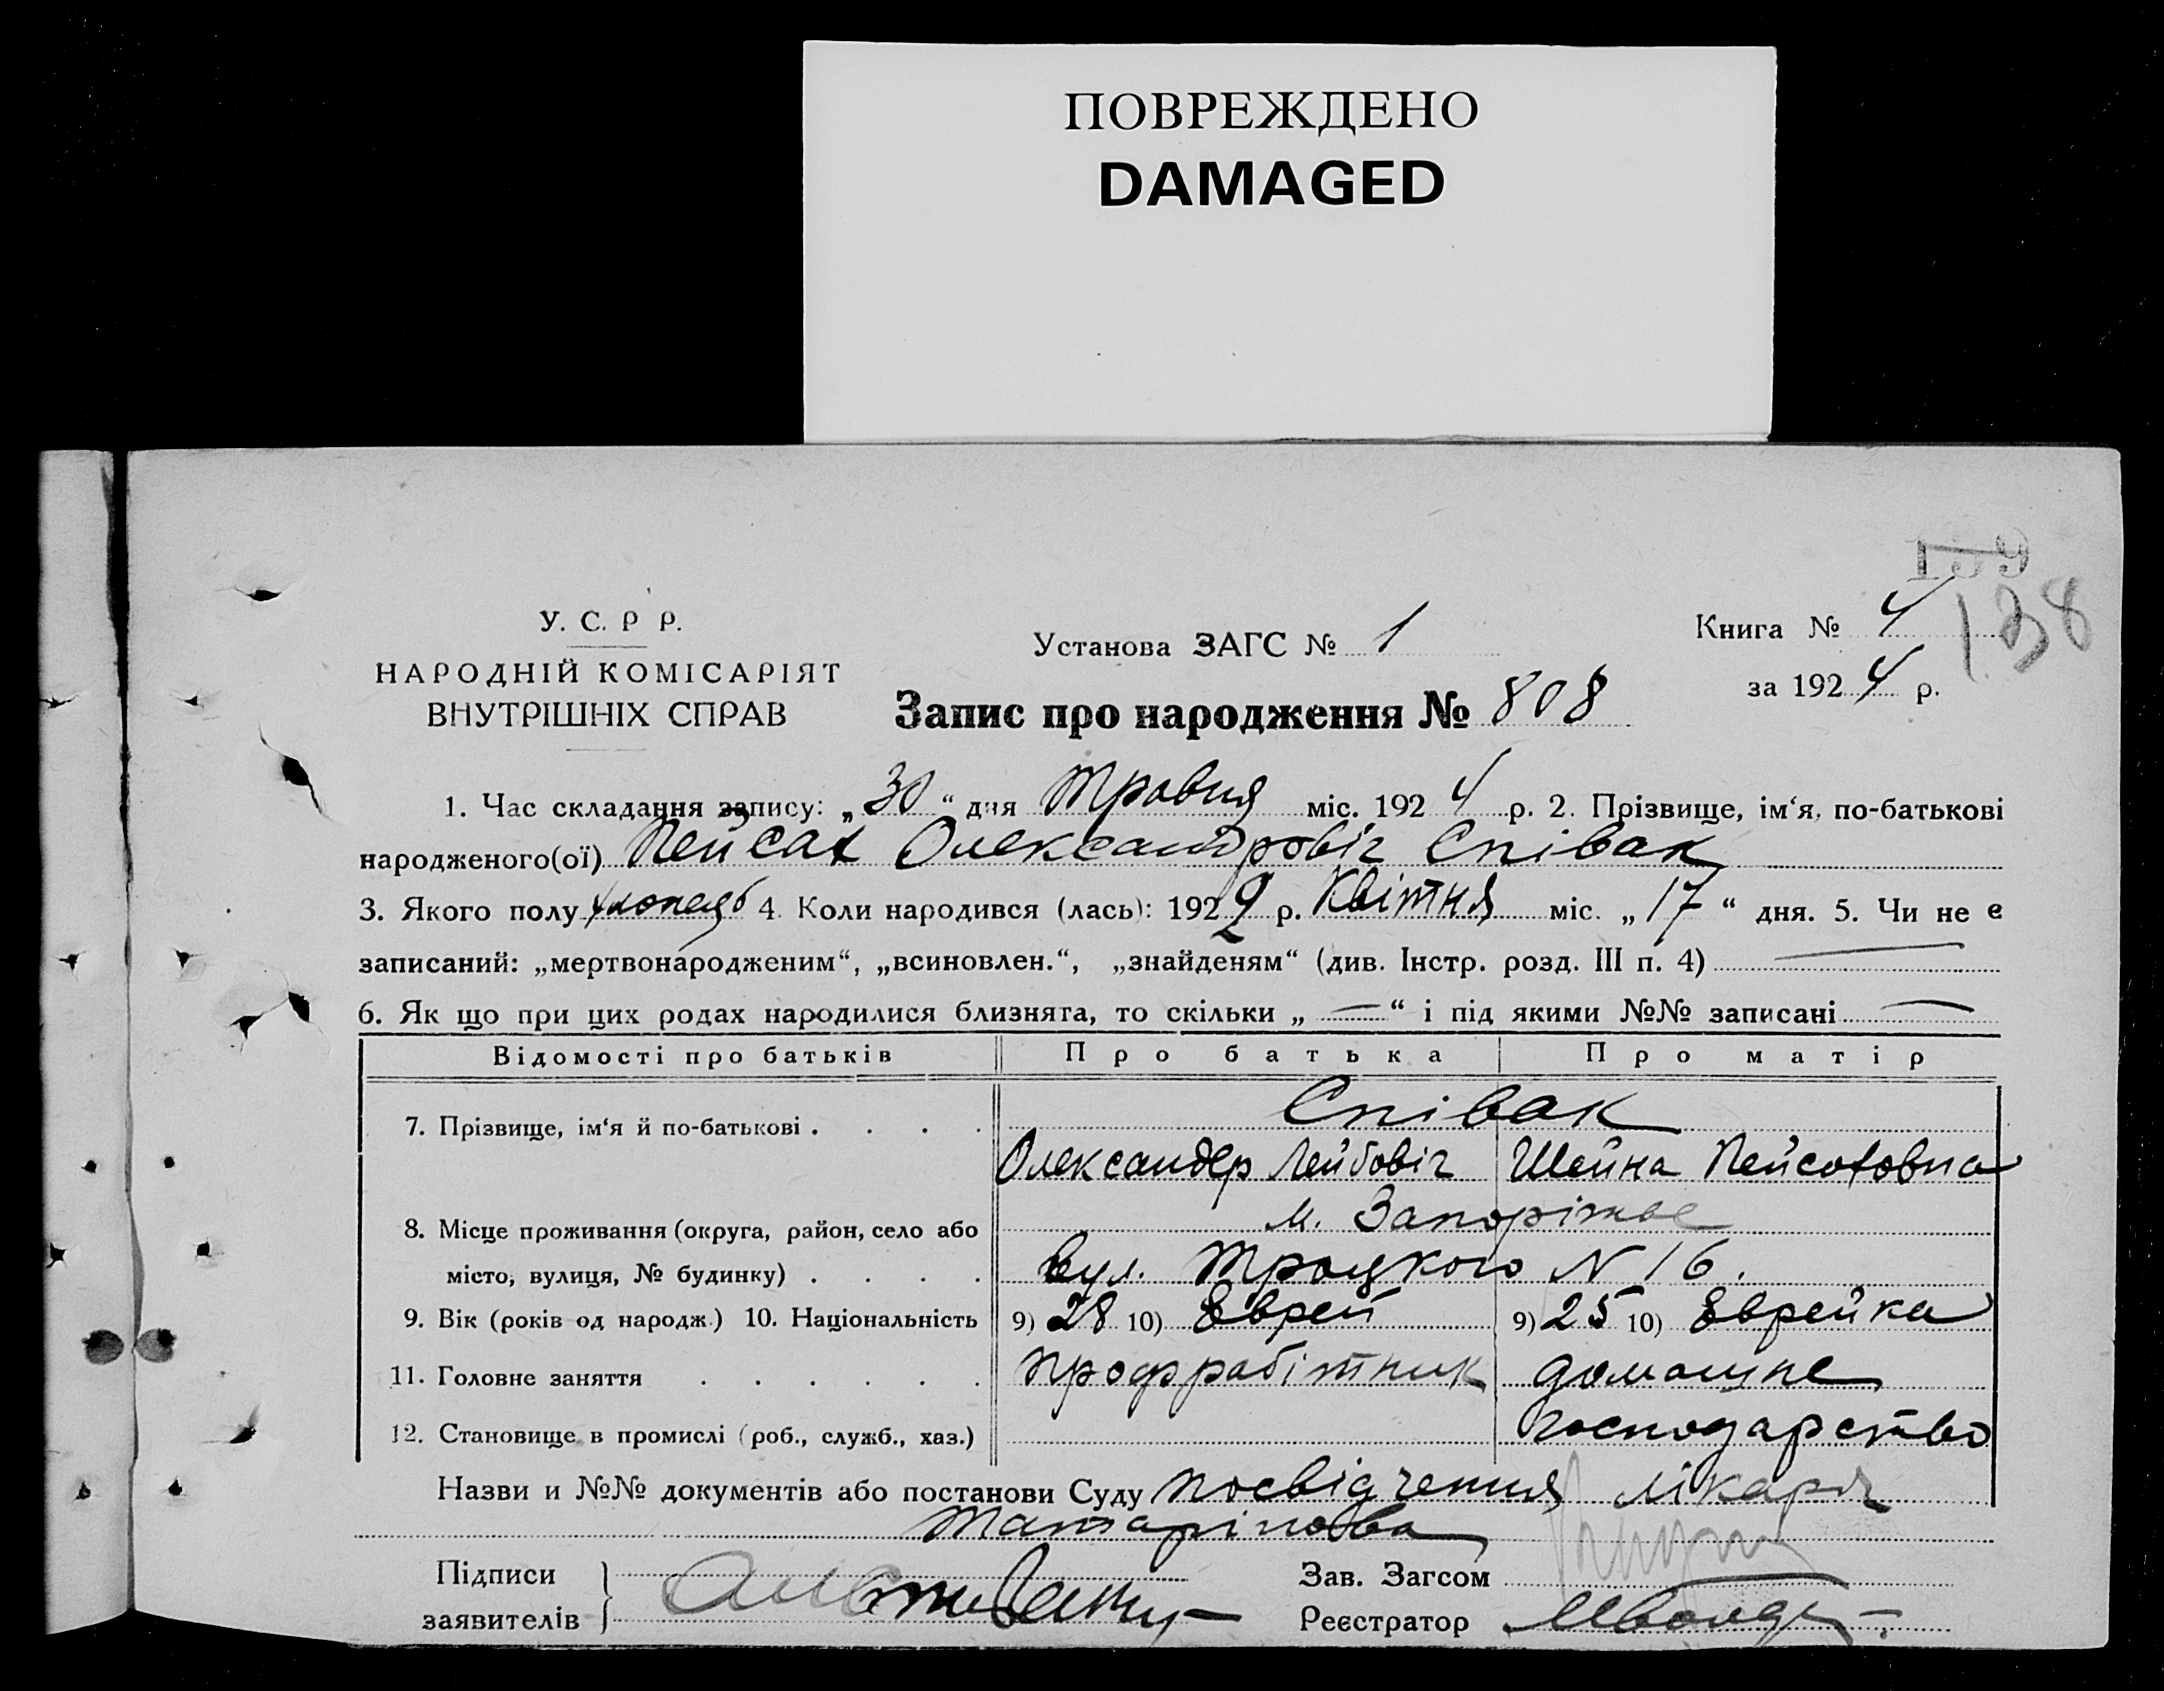 ПОВРЕЖДЕНО
DAMAGED
139
138
У. С. Р Р.
НАРОДНІЙ КОМІСАРІЯТ
ВНУТРІШНІХ СПРАВ
Установа ЗАГС № 1
Книга № 4
за 1924 р.
Запис про народження № 808
1. Час складання запису: „30“ дня Травня міс. 1924 р. 2. Прізвище, ім‘я, по-батькові
народженого(ої) Пейсах Олександровіч Співак
3. Якого полу хлопець 4. Коли народився (лась): 192 р. Квітня міс. „17“ дня. 5. Чи не є
записаний: „мертвонародженим“, „всиновлен.“, „знайденям“ (див. Інстр. розд. III п. 4) —
6. Як що при цих родах народилися близнята, то скільки „—“ і під якими №№ записані —
Відомості про батьків Про батька Про матір
Співак
7. Прізвище, ім‘я й по-батькові . . . .
Олександер Лейбовіч Шейна Пейсаховна
м. Запоріжжє
8. Місце проживання (округа, район, село або
місто, вулиця, № будинку) . . . . вул. Троцкого N 16.
9. Вік (років од народж.) 10. Національність 9) 28 10) Еврей 9) 25 10) Еврейка
11. Головне заняття . . . . . . профрабітник домашнє
12. Становище в промислі (роб., служб., хаз.) господарство
Назви и №№ документів або постанови Суду посвідчення лікаря
Татарінова
Підписи
заявителів
Зав. Загсом
Реєстратор